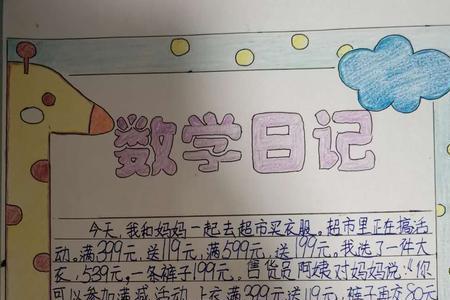 数学日记
今天,我和妈妈一起去超市买衣服。超市里正在搞活
动。满399元,送119元,满599元,送199元。我选了一件大
衣,539元,一条裤子199元,售货员阿姨对妈妈说:“你
可以参加满减活动,上衣满399元送119元,裤子再交80元